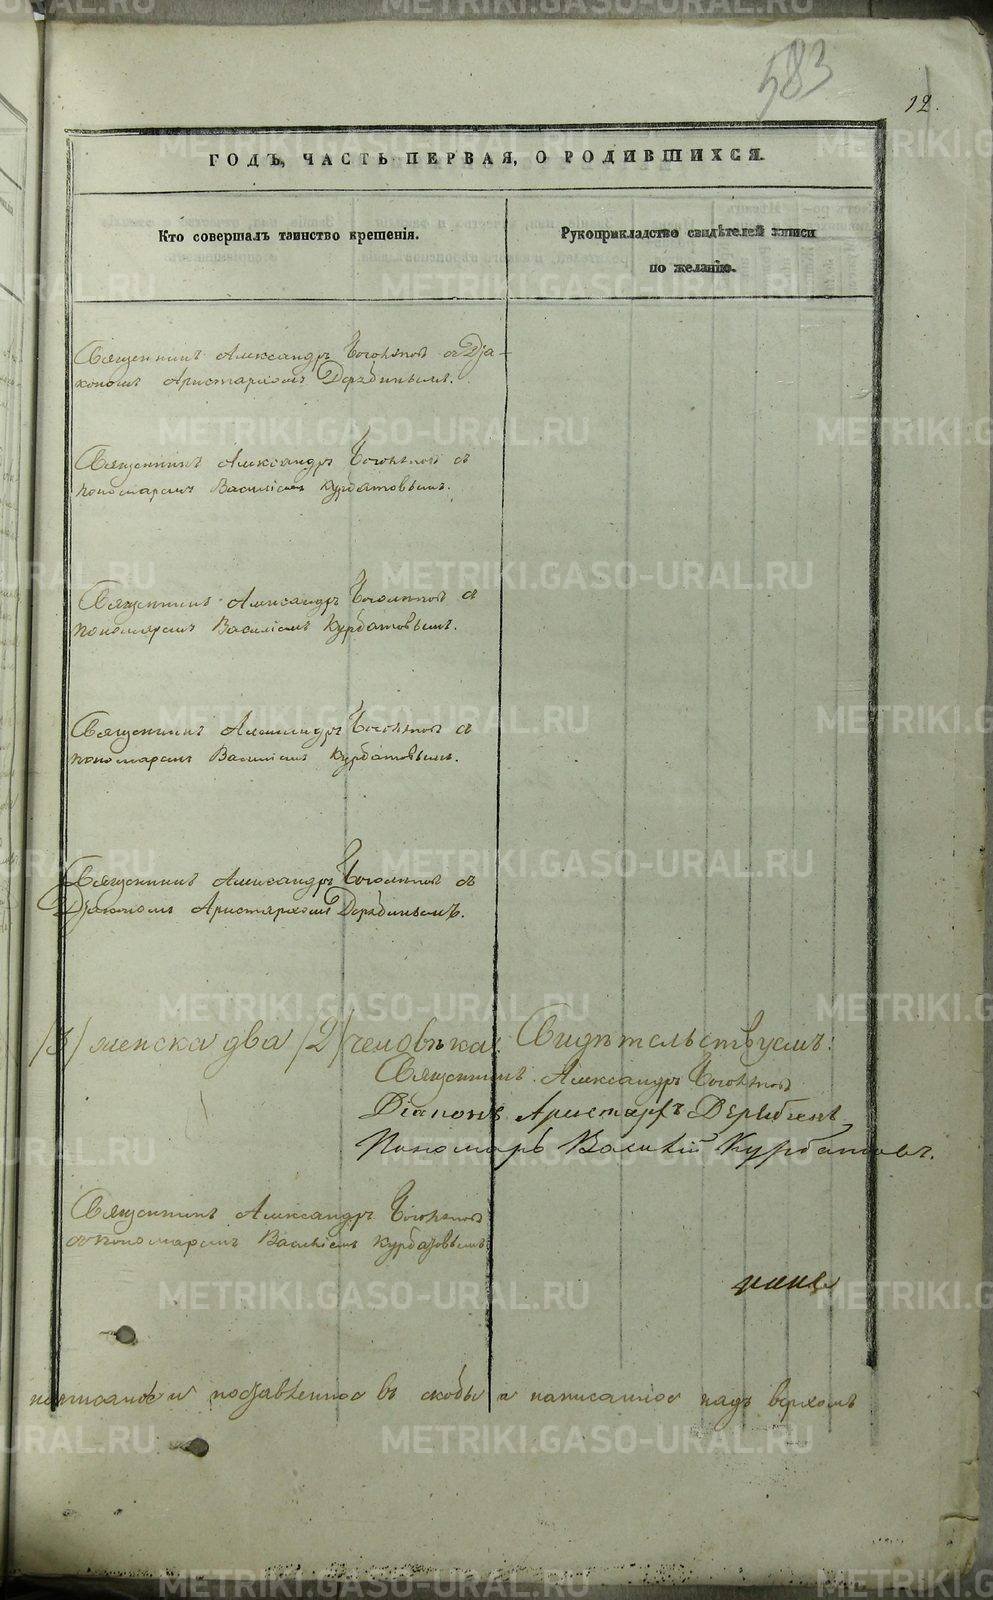 583
12.
ГОДЪ, ЧАСТЬ ПЕРВАЯ, О РОДИВШИХСЯ.
Кто совершалъ таинство крещенія.
Рукоприкладство свидѣтелей записи
по желанію.
Священникъ Александръ съ Діа-
кономъ Аристархомъ Дерябинымъ.
Священникъ Александръ съ
пономаремъ Василіемъ Курбатовымъ.
Священникъ Александръ съ
пономаремъ Василіемъ Курбатовымъ.
Священникъ Александръ съ
пономаремъ Василіемъ Курбатовымъ.
Священникъ Александръ съ
Діакономъ Аристархомъ Дерябинымъ.
/3/ женска два /2/ человѣка. Свидѣтельствуемъ:
Священникъ Александръ
Діаконъ Аристархъ Дерябинъ
Пономарь Василій Курбатовъ.
Священникъ Александръ
съ пономаремъ Василіемъ Курбатовымъ
написаное и поставленное въ скобы и написанное надъ верхомъ
METRIKI.GASO-URAL.RU